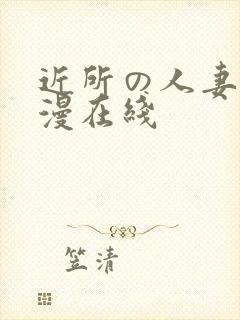 近所の人妻
漫在綫
笠清